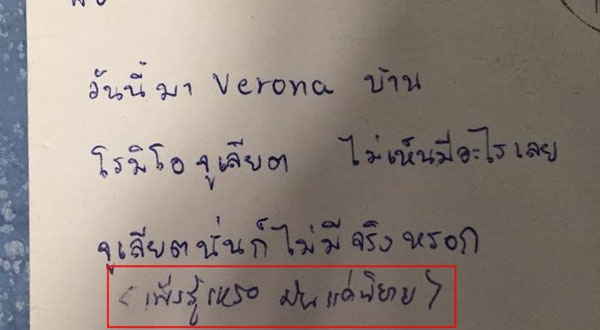 วันนี้มา Verona บ้าน
โรมิโอจูเลียต ไม่เห็นมีอะไรเลย
จูเลียตนั่นก็ไม่มีจริงหรอก
<เพิ่งรู้เหรอ มันแค่นิยาย>